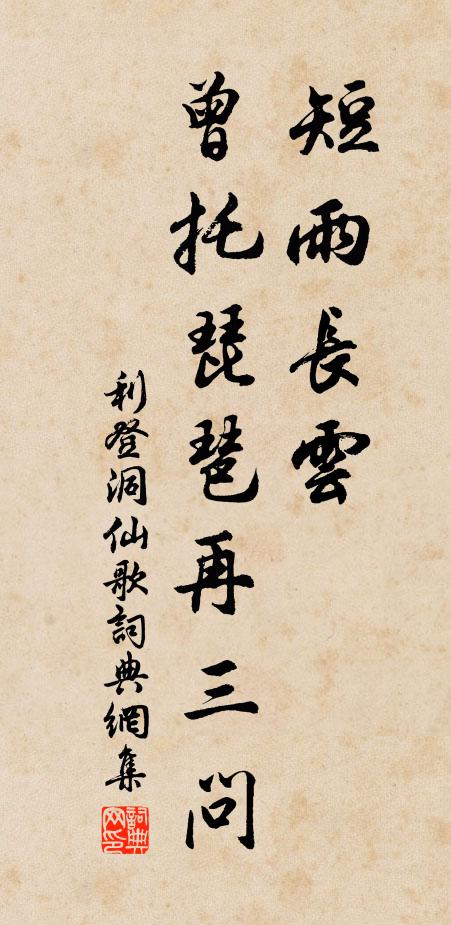 短雨長雲
曾托琵琶再三問
利登洞仙歌詞典網集
詞典網印